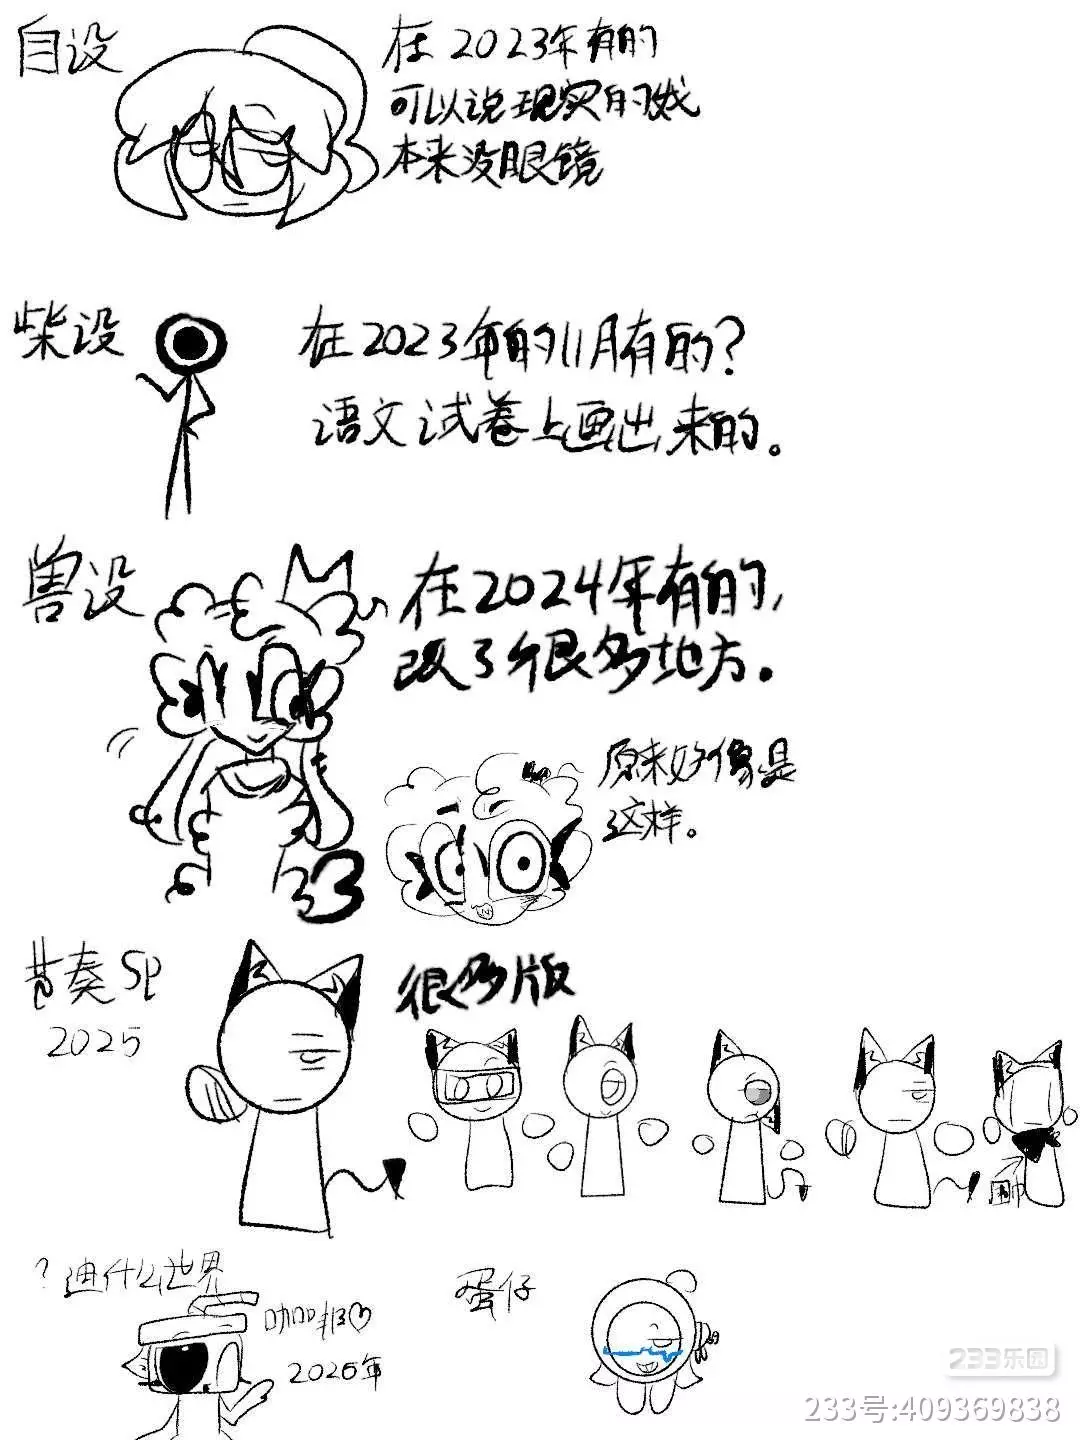 自设
在2023年有的
可以说现实的我
本来没眼镜
柴设
在2023年的11月有的?
语文试卷上画出来的。
兽设
在2024年有的,
改了很多地方。
原来好像是
这样。
节奏SP
2025
很多版
围巾
?迪什么世界
咖啡♡
2025年
蛋仔
233乐园
233号:409369838